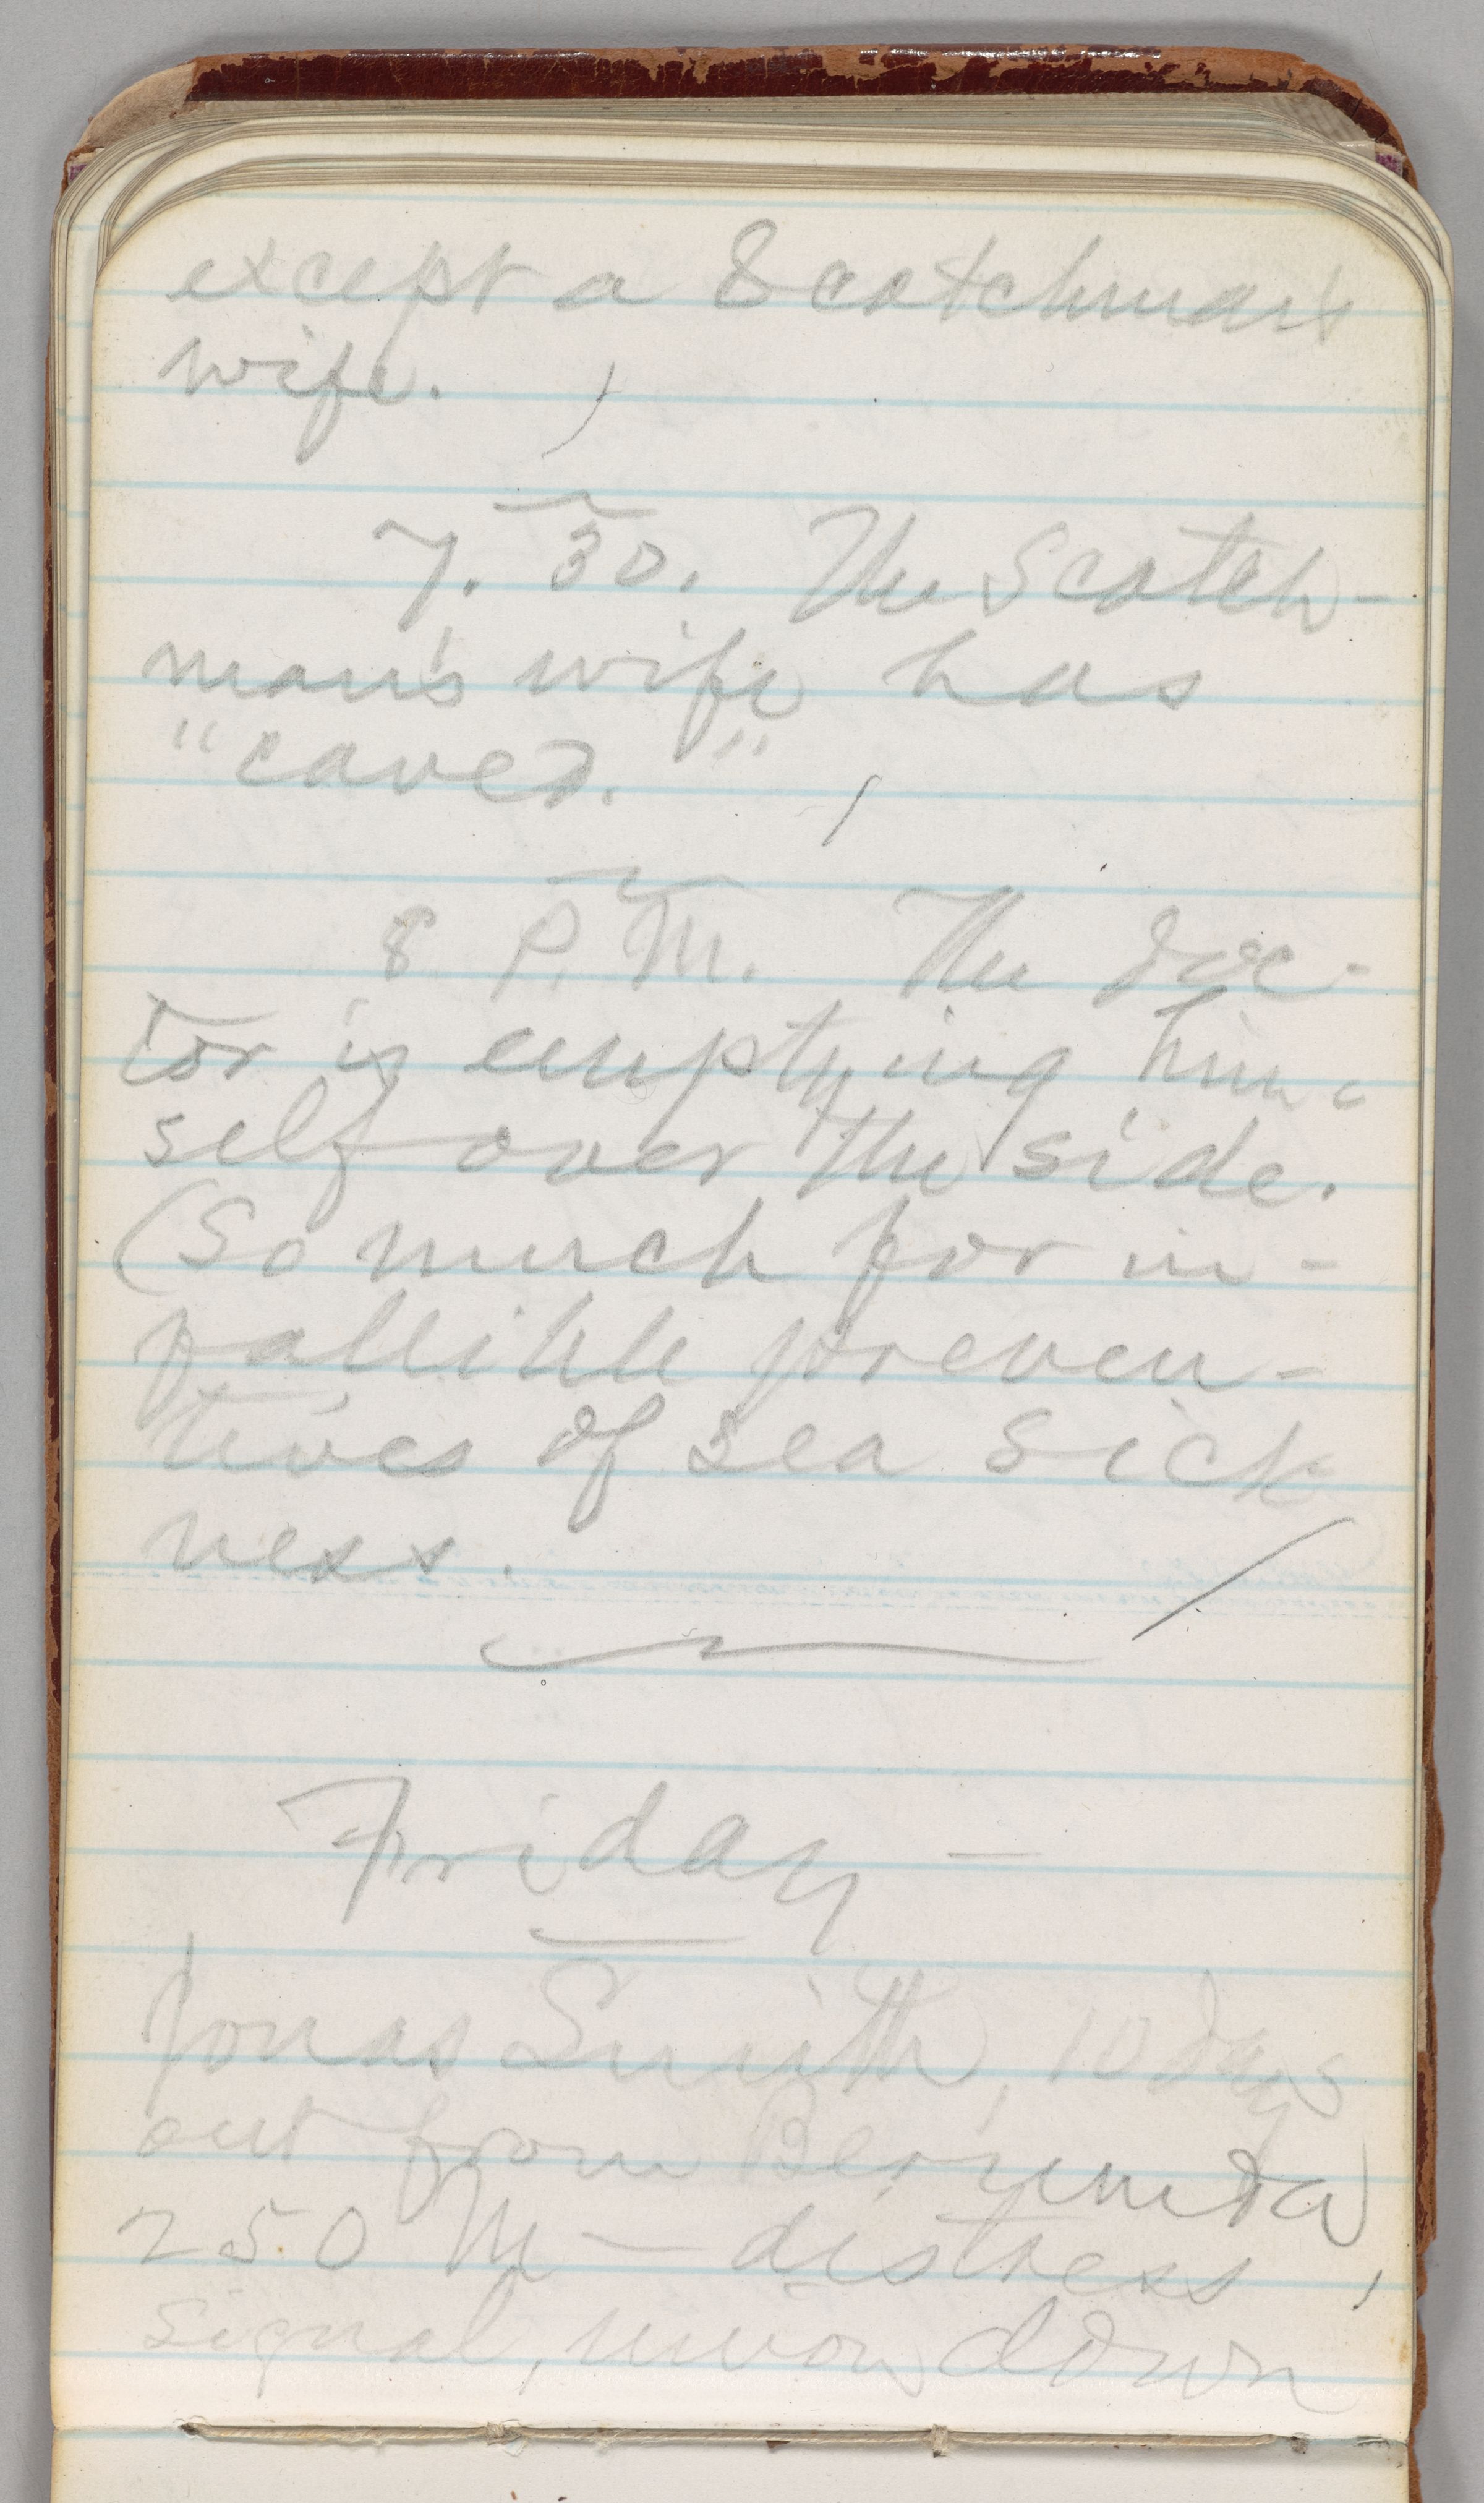 except a Scotchman's
wife.
7.30. The Scotch-
man's wife has
"caved."
8 P.M. The doc-
tor is emptying him-
self over the side.
(So much for in-
fallible preven-
tives of sea sick-
ness.
Friday —
Jonas Smith, 10 days
out from Bermuda
250 M — distress
signal, union down